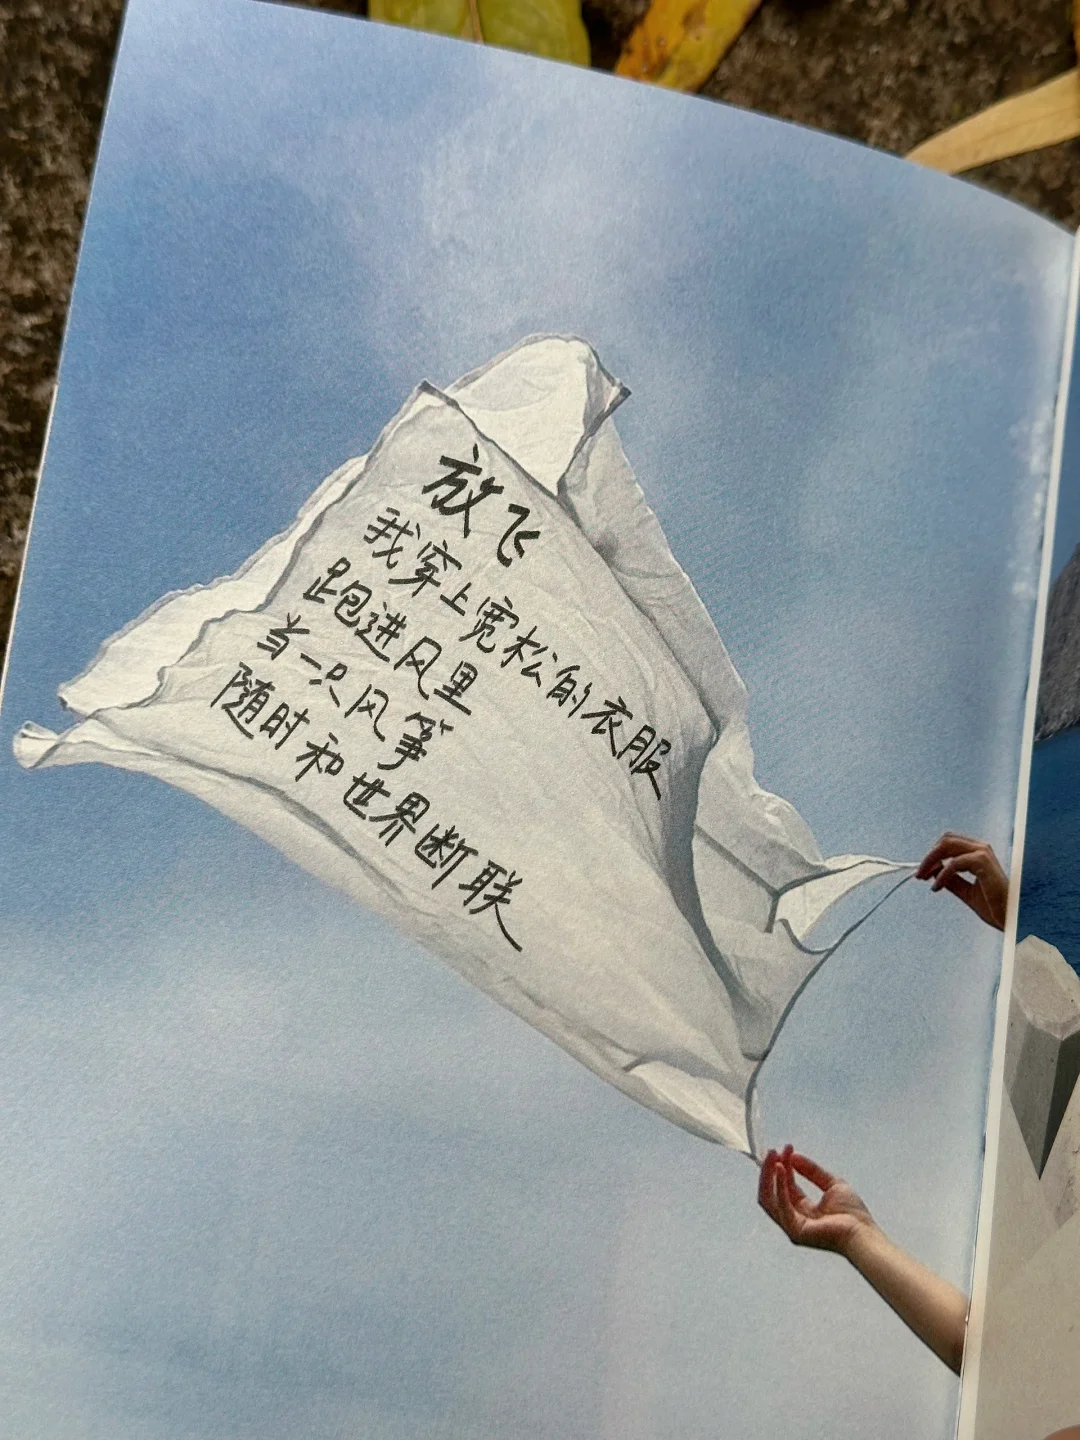 放飞
我穿上宽松的衣服
跑进风里
当一只风筝
随时和世界断联